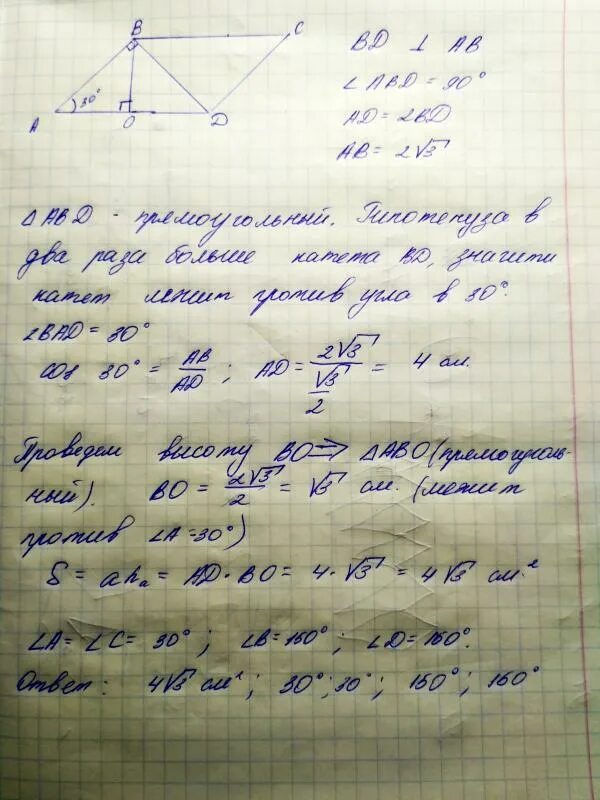 B C
30°
A O D
BD ⊥ AB
∠ABD = 90°
AD = 2BD
AB = 2√3
△ABD - прямоугольный. Гипотенуза в
два раза больше катета BD, значит
катет лежит против угла в 30°.
∠BAD = 30°
cos 30° = AB/AD ; AD = 2√3/(√3/2) = 4 см.
Проведем высоту BO ⇒ △ABO (прямоуголь-
ный). BO = 2√3/2 = √3 см. (лежит
против ∠A = 30°)
S = ahₐ = AD · BO = 4 · √3 = 4√3 см.²
∠A = ∠C = 30° ; ∠B = 150° ; ∠D = 150°.
Ответ: 4√3 см² ; 30° ; 30° ; 150° ; 150°